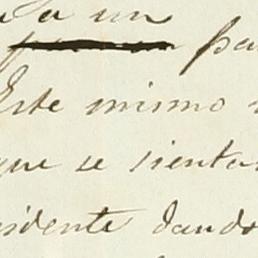 a un
pa
Este mismo
que se sienta
sidente dando